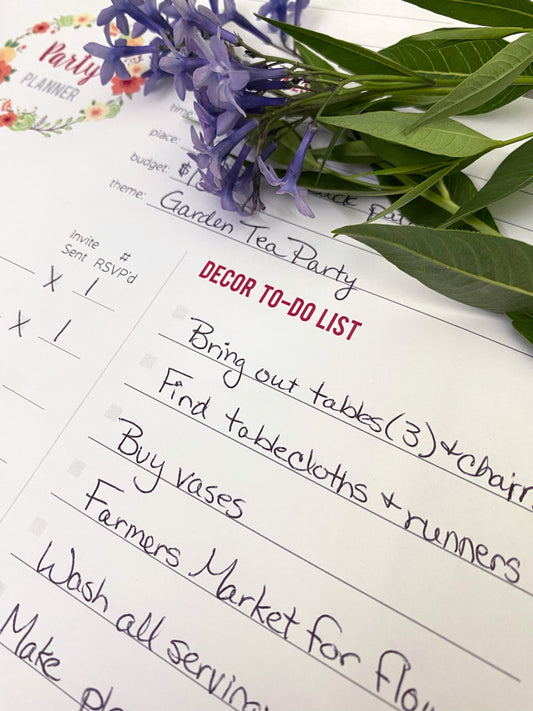 Party
PLANNER
time:
place:
budget: $1
theme: Garden Tea Party
Invite #
Sent RSVP'd
X 1
X 1
DECOR TO-DO LIST
Bring out tables (3) + chair
Find tablecloths + runners
Buy vases
Farmers Market for flow
Wash all serving
Make